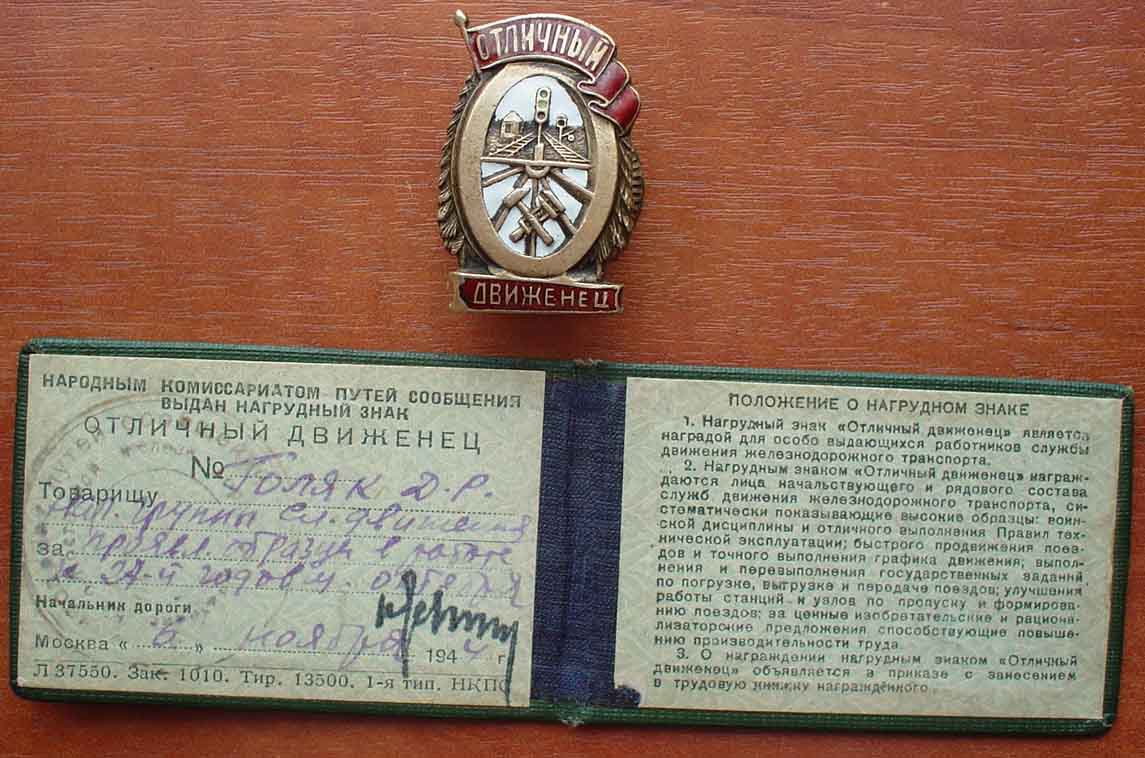 ОТЛИЧНЫЙ
ДВИЖЕНЕЦ
НАРОДНЫМ КОМИССАРИАТОМ ПУТЕЙ СООБЩЕНИЯ
ВЫДАН НАГРУДНЫЙ ЗНАК
ОТЛИЧНЫЙ ДВИЖЕНЕЦ
№
Товарищу Голяк Д.Р.
Нач. группы сл. движения
за образцы в работе
27-й годов. октября
Начальник дороги
Москва « 6 » ноября 1944 г.
Л 37550. Зак. 1010. Тир. 13500. 1-я тип. НКПС
ПОЛОЖЕНИЕ О НАГРУДНОМ ЗНАКЕ
1. Нагрудный знак «Отличный движенец» является
наградой для особо выдающихся работников службы
движения железнодорожного транспорта.
2. Нагрудным знаком «Отличный движенец» награж-
даются лица начальствующего и рядового состава
служб движения железнодорожного транспорта, си-
стематически показывающие высокие образцы: воин-
ской дисциплины и отличного выполнения Правил тех-
нической эксплуатации; быстрого продвижения поез-
дов и точного выполнения графика движения; выпол-
нения и перевыполнения государственных заданий
по погрузке, выгрузке и передаче поездов; улучшения
работы станций и узлов по пропуску и формирова-
нию поездов; за ценные изобретательские и рациона-
лизаторские предложения способствующие повыше-
нию производительности труда.
3. О награждении нагрудным знаком «Отличный
движенец» объявляется в приказе с занесением
в трудовую книжку награждённого.